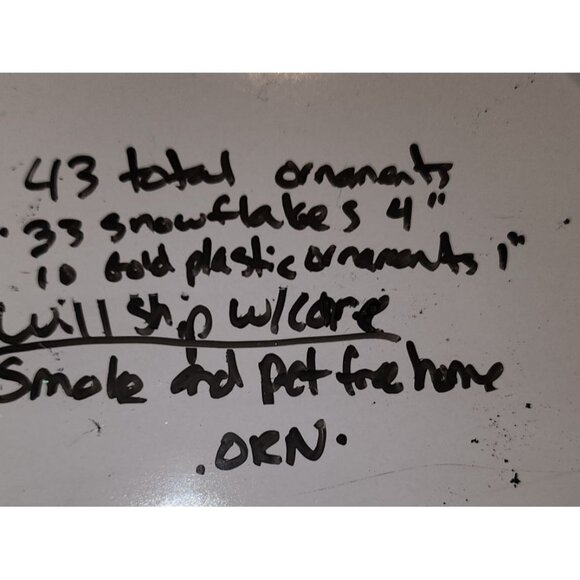 43 total ornaments
. 33 snowflakes 4"
10 Gold plastic ornaments 1"
will ship w/care
Smoke and pet free home
.ORN.